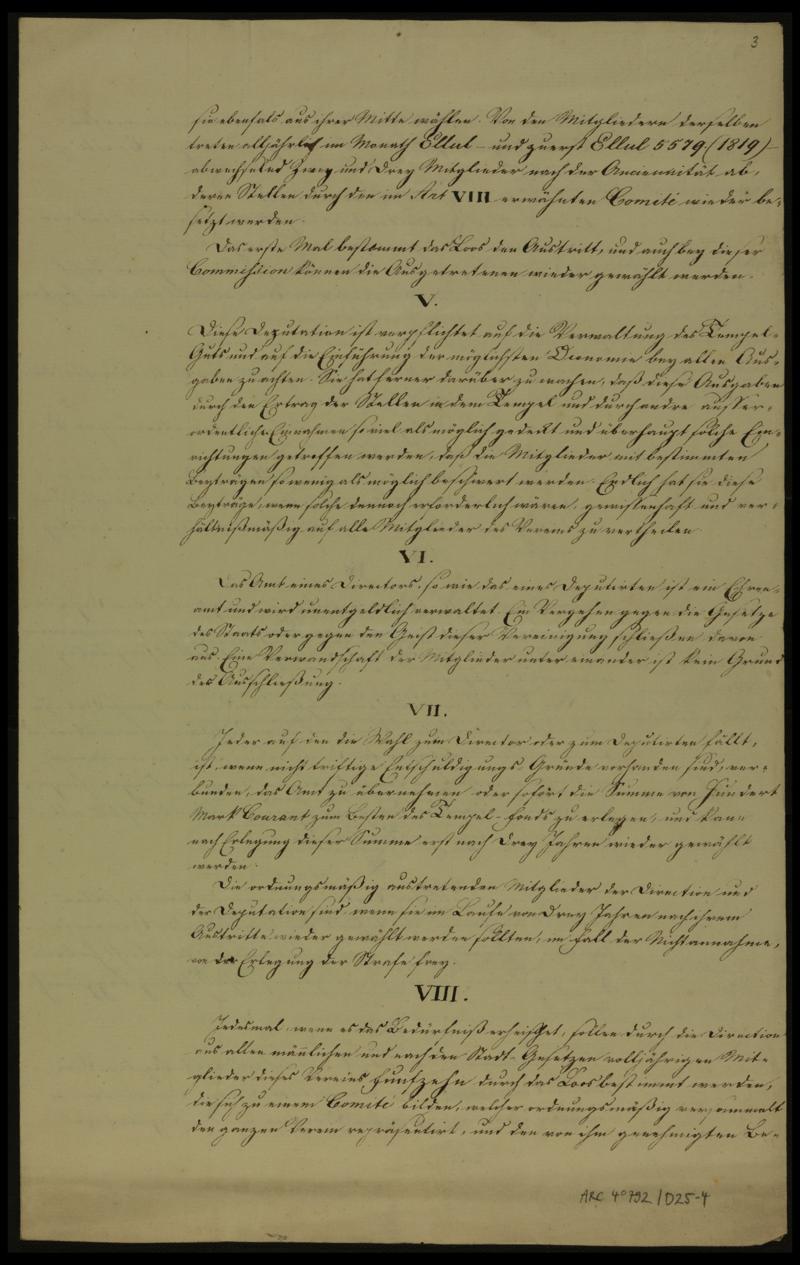 3
sie ebenfals aus ihrer Mitte wählen. Von den Mitgliedern derselben
treten alljährlich im Monath Ellul – und zuerst Ellul 5579 (1819) –
abwechselnd Zwey und Drey Mitglieder nach der Anciennität ab,
deren Stellen durch den im Art VIII erwähnten Comité wieder be-
setzt werden.
Das erste Mal bestimmt das Loos den Austritt, und auch bey dieser
Commission können die Ausgetretenen wieder gewählt werden.
V.
Diese Deputation ist verpflichtet auf die Verwaltung des Tempel-
Guts und auf die Einführung der möglichsten Oeconomie bey allen Aus-
gaben zu achten. Sie hat ferner darüber zu wachen, daß diese Ausgaben
durch den Ertrag der Stellen in dem Tempel und durch andre ausser-
ordentliche Einnahmen so viel als möglich gedeckt und überhaupt solche Ein-
richtungen getroffen werden, daß die Mitglieder mit bestimmten
Beyträgen so wenig als möglich beschwert werden. Endlich hat sie diese
Beyträge, wenn solche dennoch erforderlich wären, gewissenhaft und ver-
hältnißmäßig auf alle Mitglieder des Vereins zu vertheilen.
VI.
Das Amt eines Directors, so wie das eines Deputirten ist ein Ehren-
amt und wird unentgeldlich verwaltet. Ein Vergehen gegen die Gesetze
des Staats oder gegen den Geist dieser Vereinigung schließen davon
aus. Eine Verwandschaft der Mitglieder unter einander ist kein Grund
der Ausschließung.
VII.
Jeder auf den die Wahl zum Director oder zum Deputirten fällt,
ist, wenn nicht triftige Entschuldigungs Gründe vorhanden sind, ver-
bunden, das Amt zu übernehmen oder sofort die Summe von Hundert
Mark Courant zum Besten des Tempel-Fonds zu erlegen, und kann
nach Erlegung dieser Summe erst nach Drey Jahren wieder gewählt
werden.
Die ordnungsmäßig austretenden Mitglieder der Direction und
der Deputation sind, wenn sie im Laufe von Drey Jahren nach ihrem
Austritte wieder gewählt werden sollten, im Fall der Nichtannahme,
von der Erlegung der Strafe frey.
VIII.
Jedesmal wenn es das Bedürfniß erheischet, sollen durch die Direction
aus allen männlichen und nach den Stadt-Gesetzen volljährigen Mit-
glieder dieses Vereins Funfzehn durch das Loos bestimmt werden,
die sich zu einem Comité bilden, welcher ordnungsmäßig versammelt
den ganzen Verein repräsentirt, und den von ihm genehmigten Be-
ARC 4° 792 / D25-4